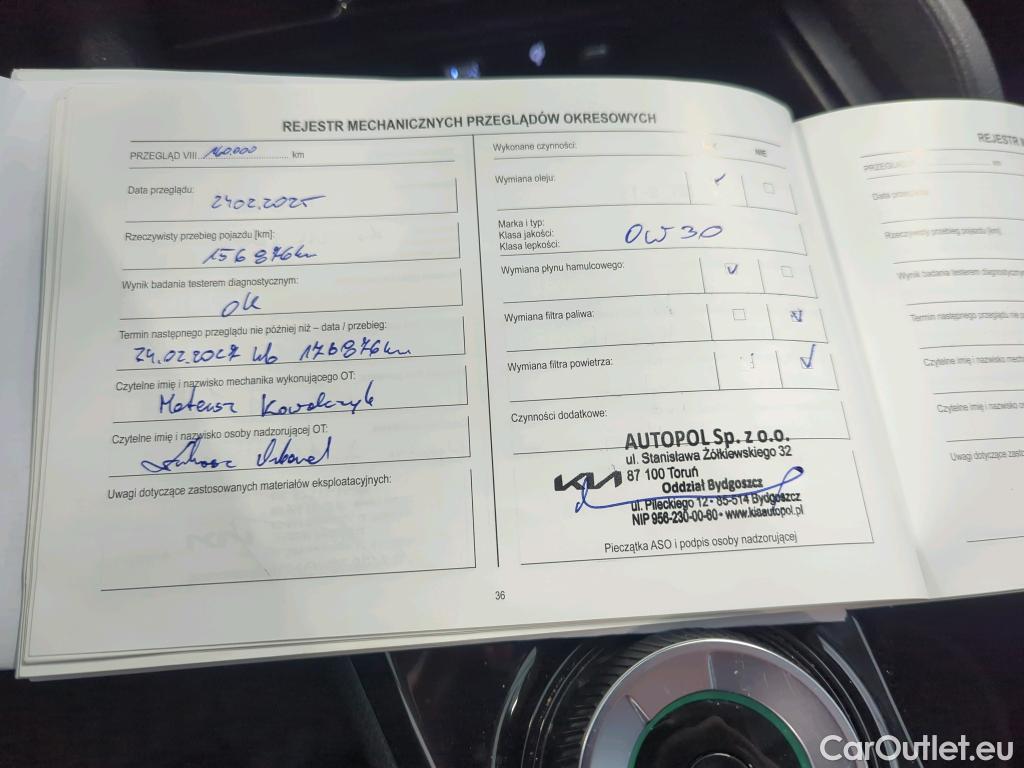 REJESTR MECHANICZNYCH PRZEGLĄDÓW OKRESOWYCH
PRZEGLĄD VIII 160.000 km
Data przeglądu:
24.02.2025
Rzeczywisty przebieg pojazdu [km]:
156 876km
Wynik badania testerem diagnostycznym:
ok
Termin następnego przeglądu nie później niż – data / przebieg:
24.02.2027 lub 176876km
Czytelne imię i nazwisko mechanika wykonującego OT:
Mateusz Kowalczyk
Czytelne imię i nazwisko osoby nadzorującej OT:
Uwagi dotyczące zastosowanych materiałów eksploatacyjnych:
Wykonane czynności:
NIE
Wymiana oleju:
Marka i typ:
Klasa jakości:
Klasa lepkości:
0W30
Wymiana płynu hamulcowego:
Wymiana filtra paliwa:
Wymiana filtra powietrza:
Czynności dodatkowe:
AUTOPOL Sp. z o.o.
ul. Stanisława Żółkiewskiego 32
KIA 87 100 Toruń
Oddział Bydgoszcz
ul. Pileckiego 12 • 85-514 Bydgoszcz
NIP 956-230-00-60 • www.kiaautopol.pl
Pieczątka ASO i podpis osoby nadzorującej
36
REJESTR
PRZEGLĄD km
Data przeglądu:
Rzeczywisty przebieg pojazdu [km]:
Wynik badania testerem
Termin następnego przeglądu nie
Czytelne imię i nazwisko
Czytelne imię i nazwisko
Uwagi dotyczące
CarOutlet.eu